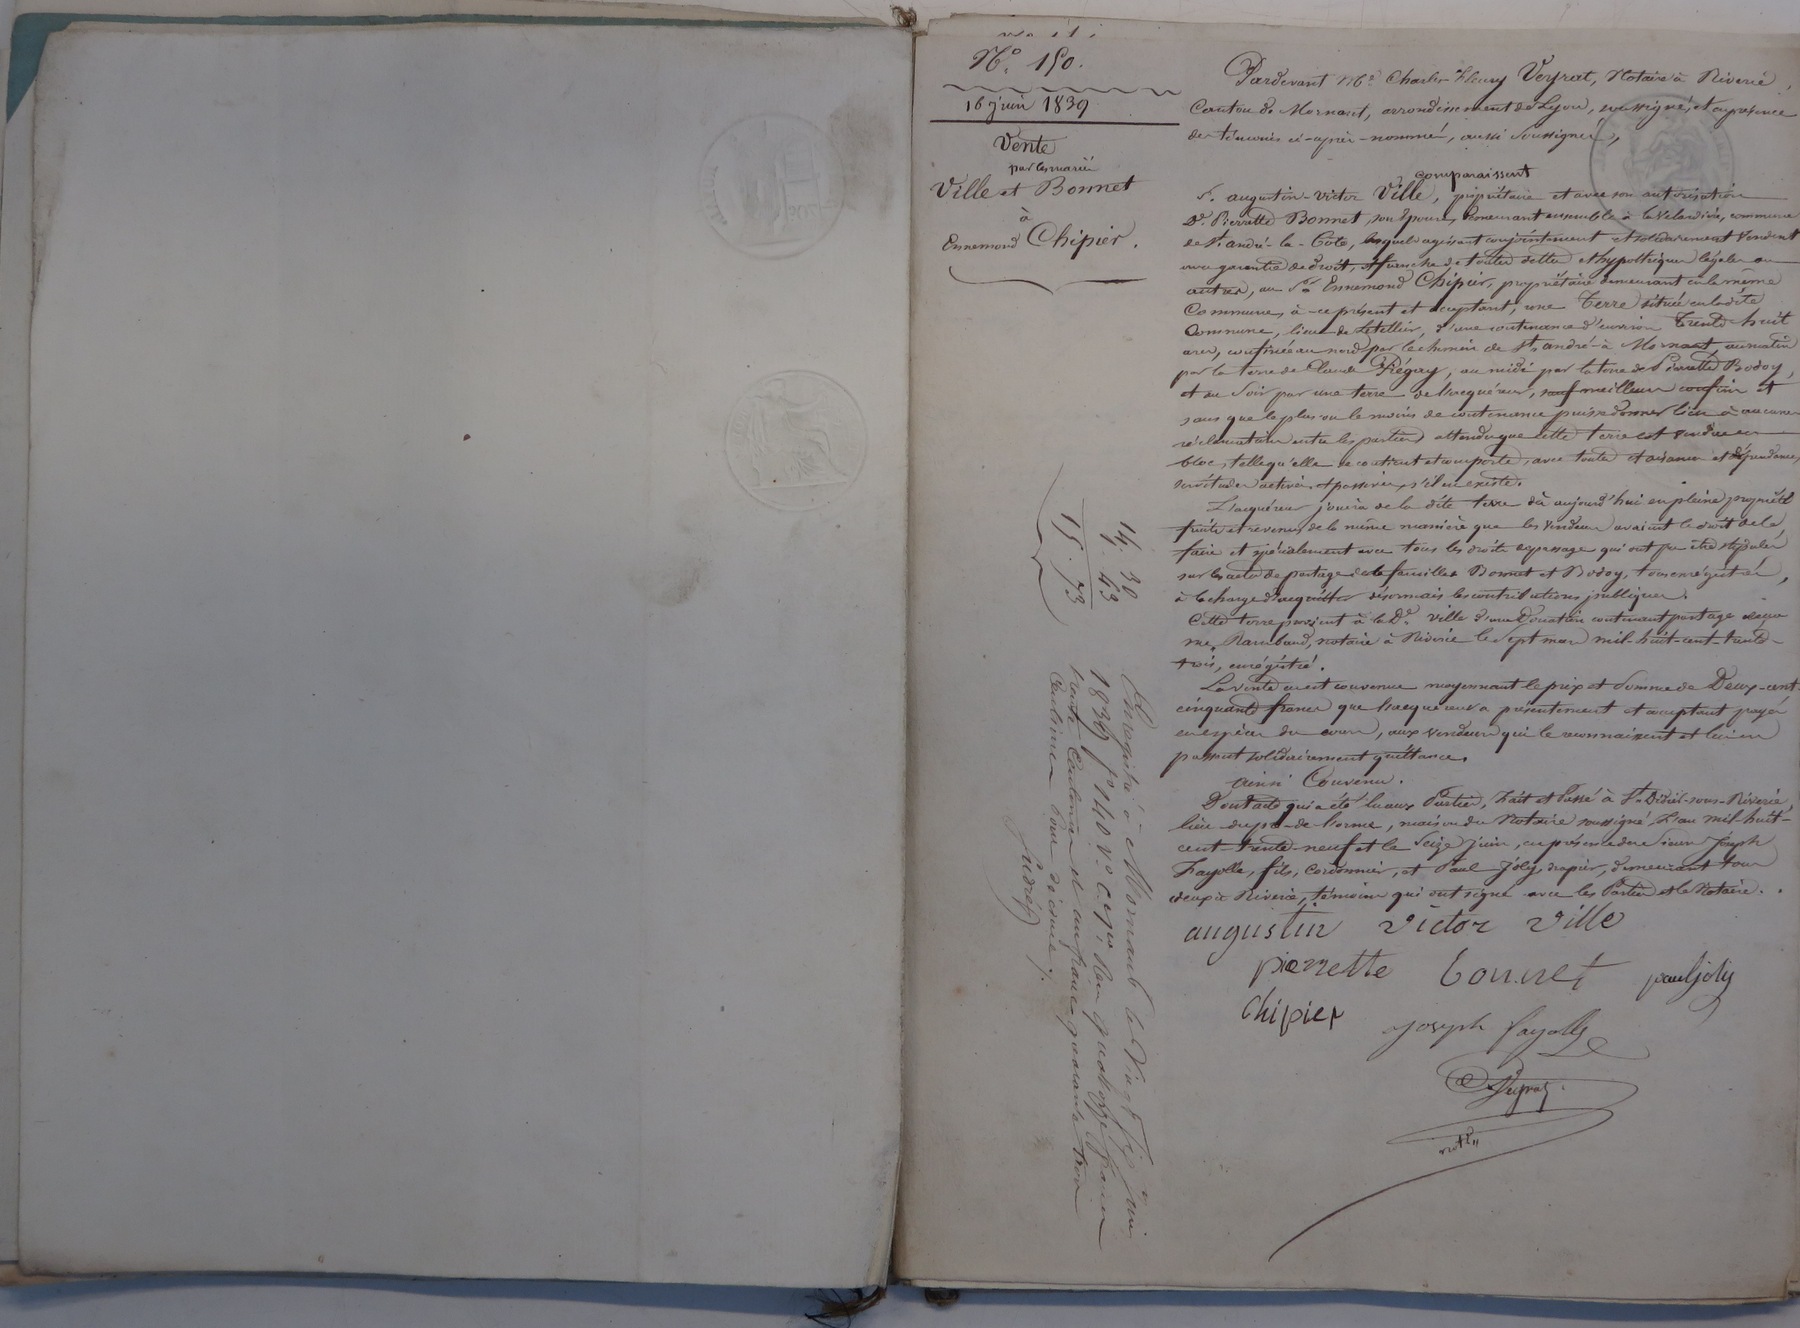 N.º 150.
16 juin 1839
Vente
par les mariés
Ville et Bonnet
à
Ennemond Chipier.
Pardevant Mᵉ Charles-Fleury Veyrat, Notaire à Riverie,
Canton de Mornant, arrondissement de Lyon, soussigné, et en présence
des témoins ci-après-nommés, aussi soussignés,
comparaissent
S. augustin-victor Ville, propriétaire et avec son autorisation
Dᵉ Pierrette Bonnet, son épouse, demeurant ensemble à commune
de St. andré-la-Côte, lesquels agissant conjointement et solidairement Vendent
avec garantie de droit, et franche de toutes dettes et hypothèques légales ou
autres, au Sʳ Ennemond Chipier, propriétaire demeurant en la même
Commune, à ce présent et acceptant, une Terre située en ladite
Commune, lieu de d'une contenance d'environ trente huit
ares, confinée au nord par le chemin de St. andré à Mornant, au matin
par la terre de Claude au midi par la terre de Pierrette Bodoy,
et au soir par une terre de l'acquéreur, sauf meilleurs confins et
sans que le plus ou le moins de contenance puisse donner lieu à aucune
réclamation entre les parties attendu que cette terre est vendue en
bloc, telle qu'elle se contient et comporte, avec toutes et aisances et dépendances,
servitudes actives et passives, s'il en existe.
L'acquéreur jouira de la dite terre dès aujourd'hui en pleine propriété
fruits et revenus de la même manière que les vendeurs avaient le droit de le
faire et spécialement avec tous les droits de passage qui ont pu être stipulés
sur les actes de partage de la famille Bonnet et Bodoy, tous enrégistrés,
à la charge d'acquitter désormais les contributions publiques.
Cette terre parvient à la Dᵉ Ville d'une Donation contenant partage reçue
me Rambaud, notaire à Riverie le sept mars mil-huit-cent-trente-
trois, enrégistré.
La vente en est convenue moyennant le prix et somme de Deux-cent-
cinquante francs que l'acquéreur a présentement et comptant payés
en espèces du cours, aux vendeurs qui le reconnaissent et lui en
passent solidairement quittance.
Ainsi Convenu.
Dont acte qui a été lu aux Parties, Fait et Passé à St. Didier-sous-Riverie,
lieu du pré-de-l'orme, maison du Notaire soussigné L'an mil-huit-
cent-trente-neuf et le Seize juin, en présence des Sieurs Joseph
Fayolle, fils, Cordonnier, et Paul Joly, drapier, demeurant tous
deux à Riverie, témoins qui ont signé avec les Parties et le Notaire.
augustin victor ville
pierrette bonnet paul joly
Chipier
joseph fayolle
Veyrat
notʳᵉ
14. 30
1. 43
15. 73
Enregistré à Mornant le Vingt Six juin
1839 f° 140 v° c. Reçu quatorze francs
trente centimes et un franc quarante trois
centimes pour décime.